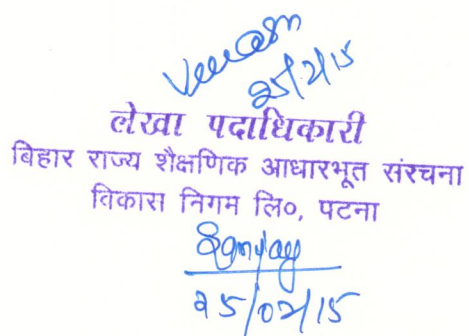 25/2/15
लेखा पदाधिकारी
बिहार राज्य शैक्षणिक आधारभूत संरचना
विकास निगम लि०, पटना
Sanjay
25/02/15